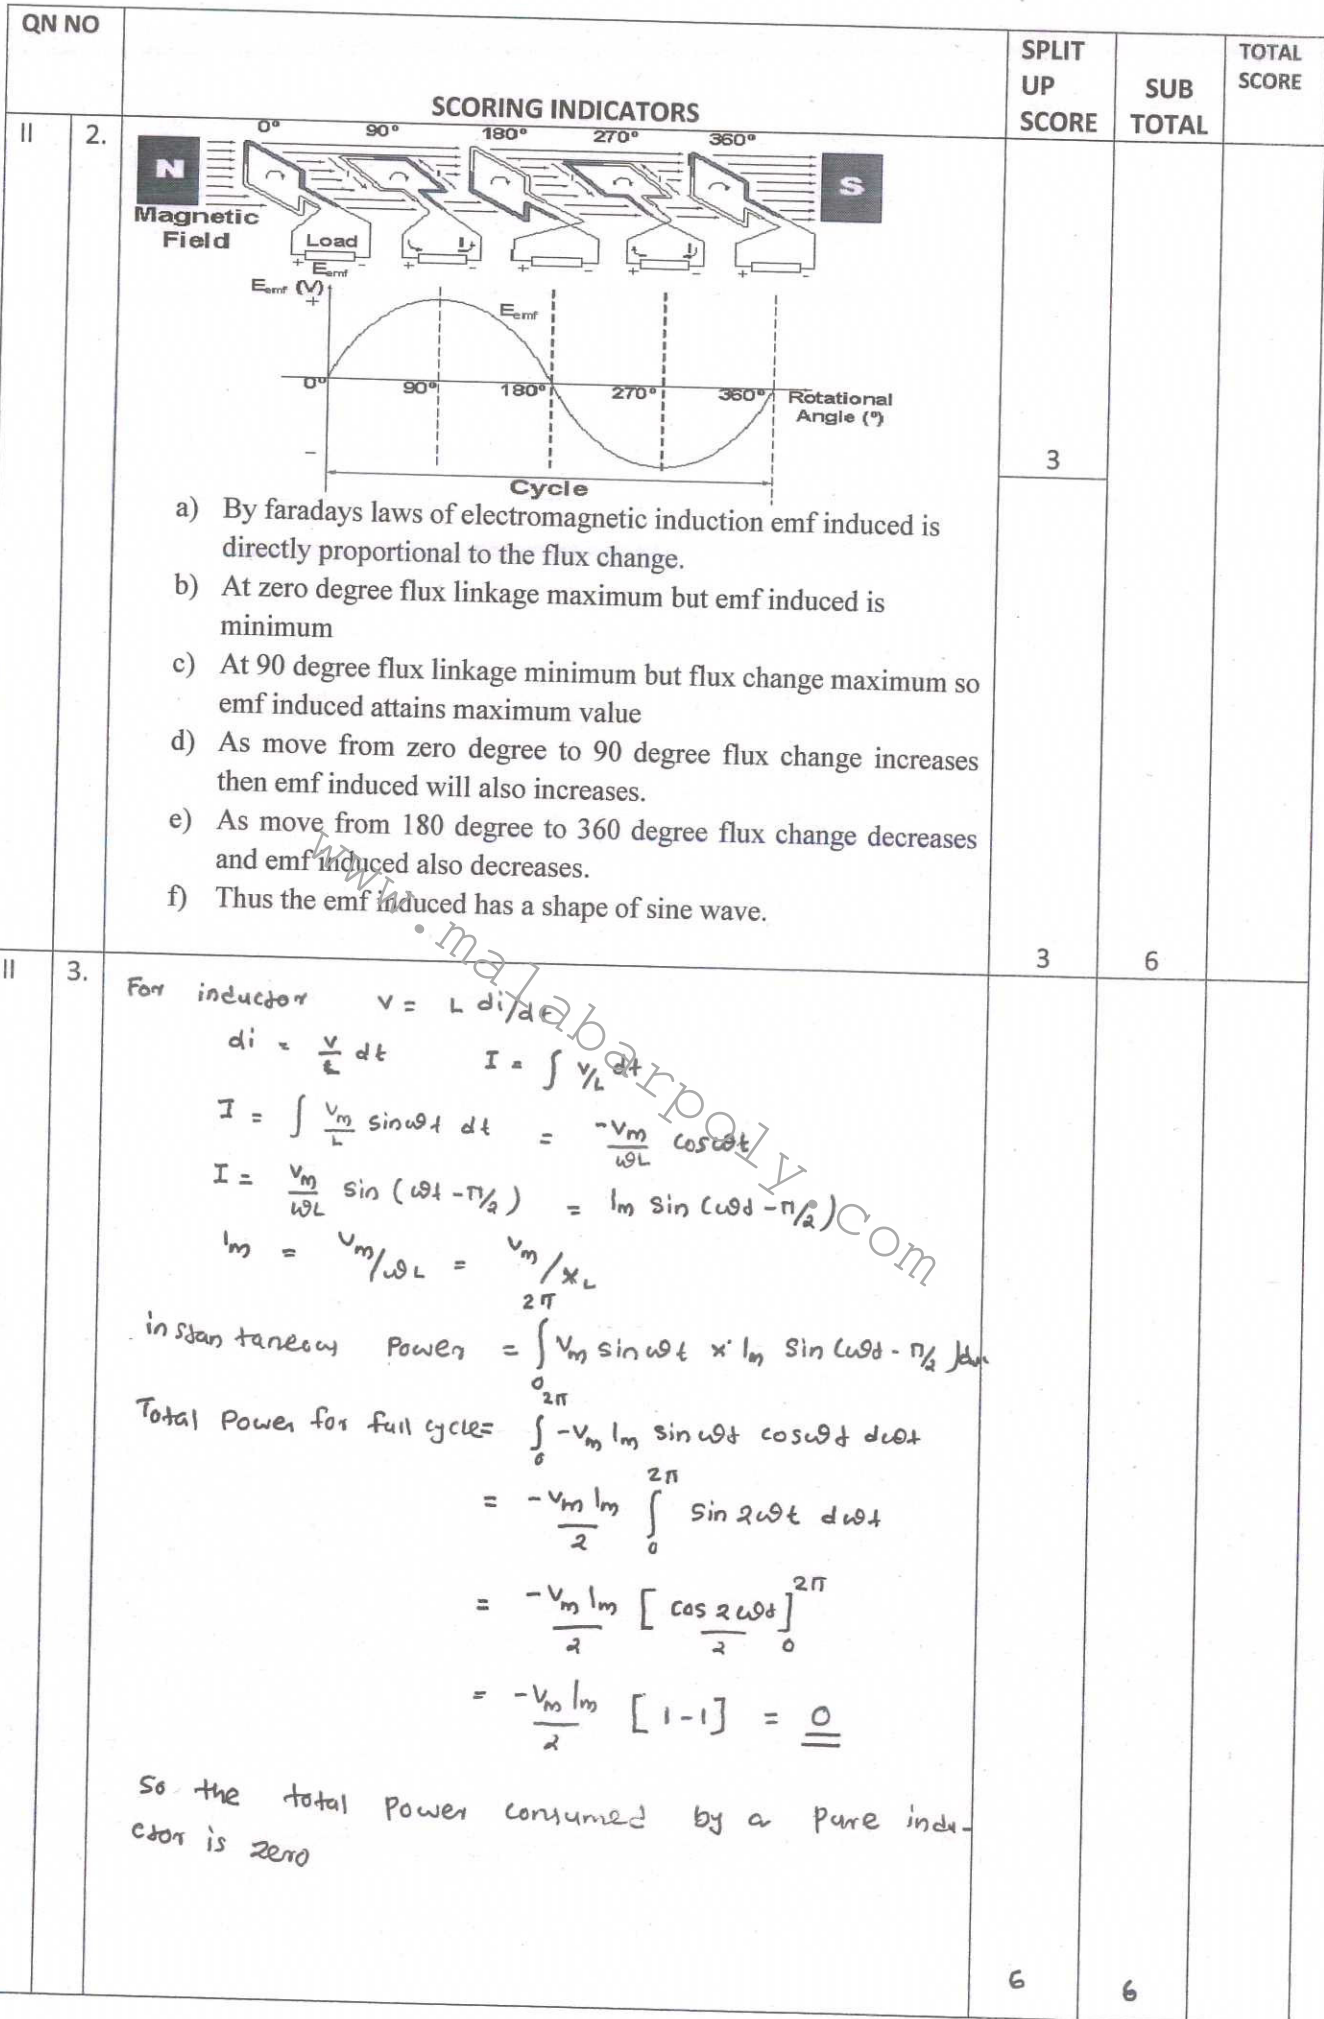 QN NO
SCORING INDICATORS
SPLIT UP SCORE
SUB TOTAL
TOTAL SCORE
II 2.
0° 90° 180° 270° 360°
N S
Magnetic
Field
Load
I I
+ - + - + - + - + -
Eemf
Eemf (V)
+
Eemf
0° 90° 180° 270° 360° Rotational
Angle (°)
-
Cycle
3
a) By faradays laws of electromagnetic induction emf induced is
directly proportional to the flux change.
b) At zero degree flux linkage maximum but emf induced is
minimum
c) At 90 degree flux linkage minimum but flux change maximum so
emf induced attains maximum value
d) As move from zero degree to 90 degree flux change increases
then emf induced will also increases.
e) As move from 180 degree to 360 degree flux change decreases
and emf induced also decreases.
f) Thus the emf induced has a shape of sine wave.
3 6
www.malabarpoly.com
II 3.
For inductor V = L di/dt
di = V/L dt I = ∫ V/L dt
I = ∫ Vm/L sinωt dt = -Vm/ωL cosωt
I = Vm/ωL sin (ωt - π/2) = Im sin (ωt - π/2)
Im = Vm/ωL = Vm/XL
instantaneous Power = ∫₀^2π Vm sin ωt × Im Sin (ωt - π/2) dωt
Total Power for full cycle = ∫₀^2π -Vm Im sin ωt cosωt dωt
= -Vm Im/2 ∫₀^2π Sin 2ωt dωt
= -Vm Im/2 [cos 2ωt/2]₀^2π
= -Vm Im/2 [1-1] = 0
So the total Power consumed by a Pure indu-
ctor is zero
6 6